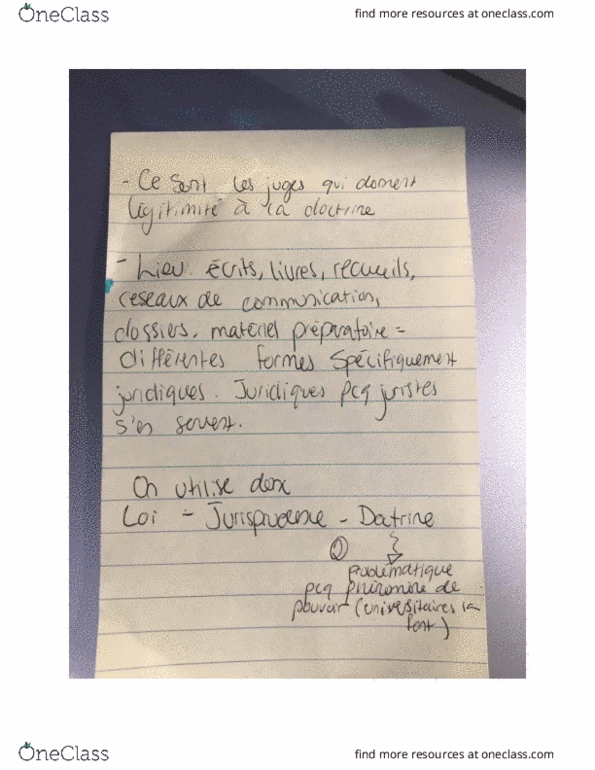 OneClass
find more resources at oneclass.com
- Ce sont les juges qui donnent
légitimité à la doctrine
- Lieu. écrits, livres, recueils,
réseaux de communication,
dossiers. matériel préparatoire =
différentes formes spécifiquement
juridiques. Juridiques pcq juristes
s'en servent.
On utilise donc
Loi - Jurisprudence - Doctrine
problématique
pcq de
pouvoir (universitaires la
font)
OneClass
find more resources at oneclass.com